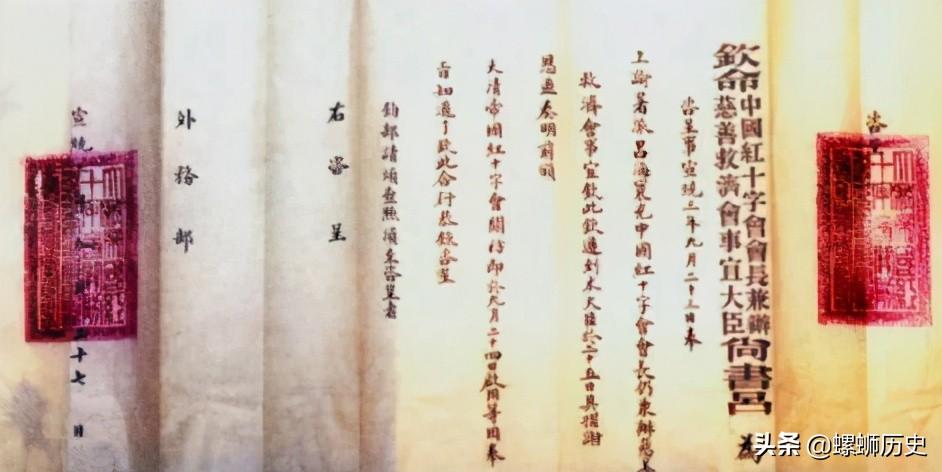 咨
欽命中國紅十字會會長兼辦
慈善救濟會事宜大臣尚書呂 為
咨呈事宣統三年九月二十三日奉
上諭著派呂海寰充中國紅十字會會長仍兼辦慈善
救濟會事宜欽此欽遵到本大臣於二十五日具摺謝
恩並奏明前頒
大清帝國紅十字會關防即於九月二十四日啟用等因奉
旨知道了欽此合行恭錄咨呈
鈞部請煩查照須至咨呈者
右咨呈
外務部
宣統 十七日
头条 @螺蛳历史